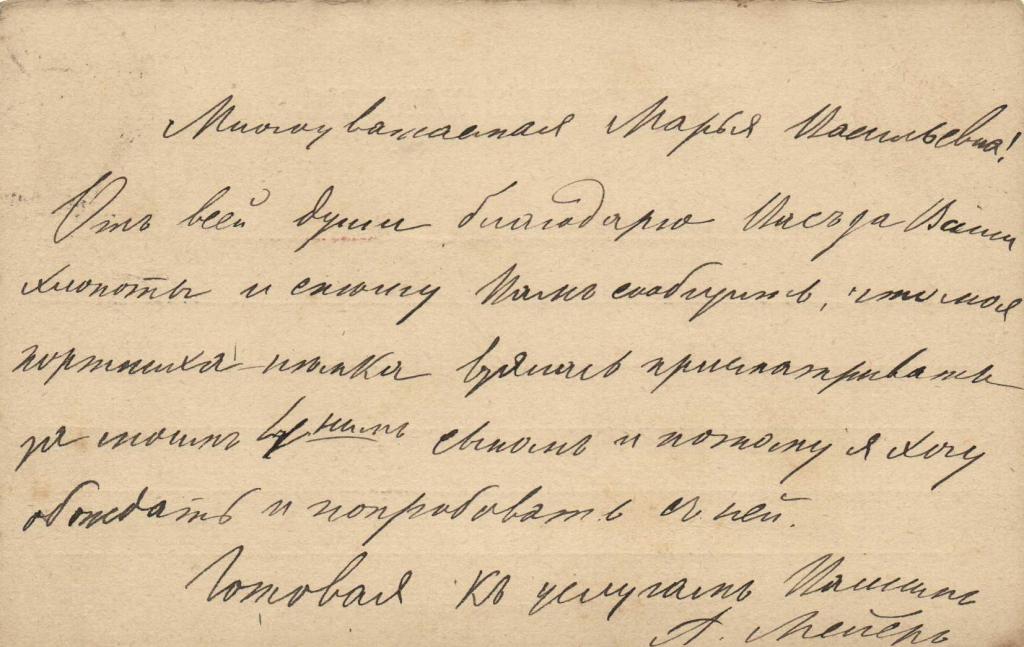 Многоуважаемая Марья Васильевна!
Отъ всей души благодарю Васъ за Ваши
хлопоты и спѣшу Вамъ сообщить, что моя
портниха нѣмка взялась присматривать
за моимъ 4 нимъ сыномъ и потому я хочу
обождать и попробовать съ ней.
Готовая къ услугамъ Вашимъ
А. Мейеръ